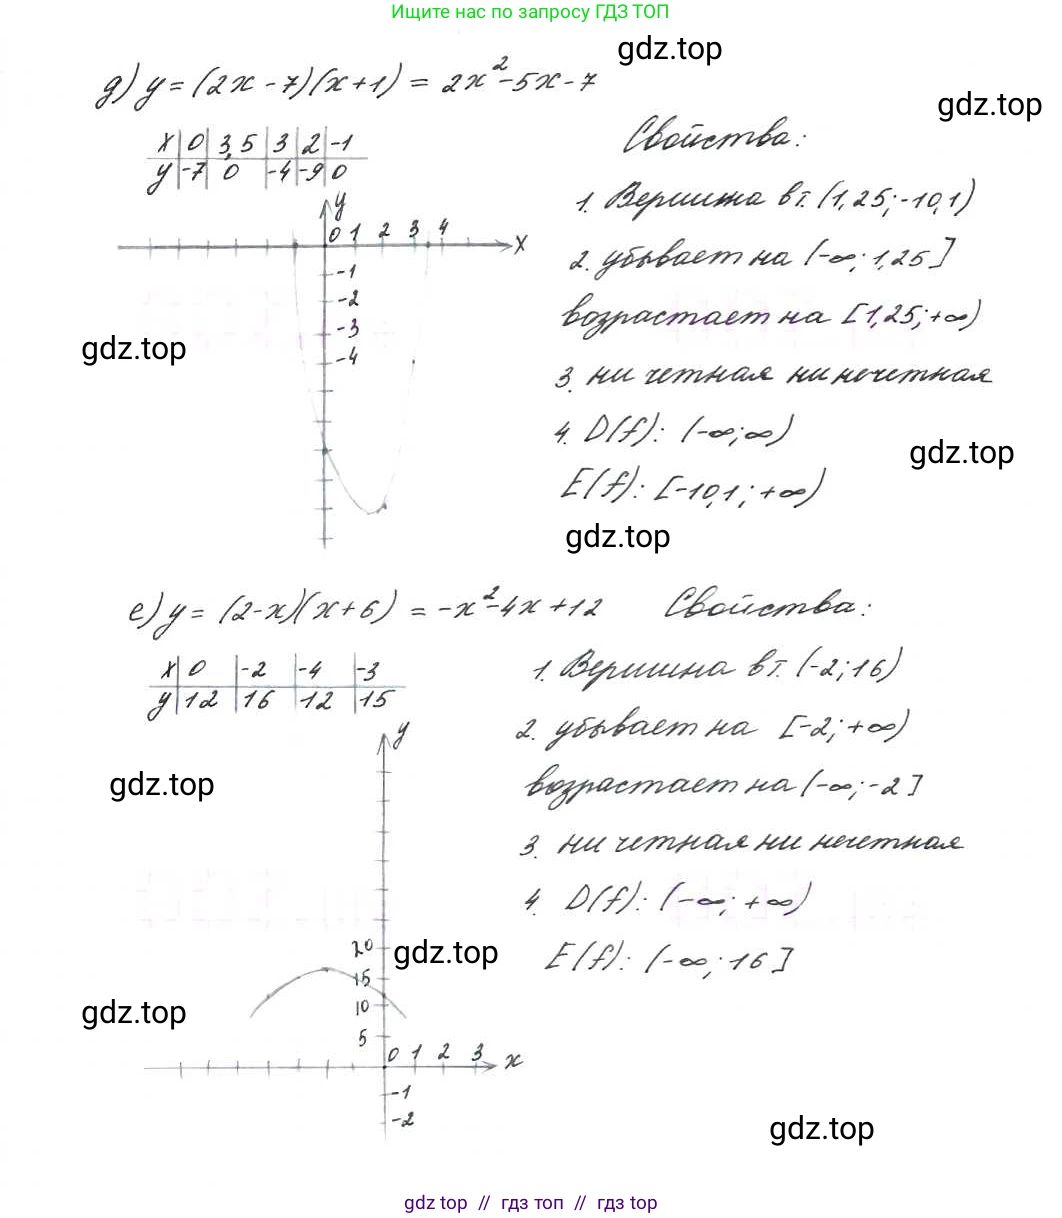 Ищите нас по запросу ГДЗ ТОП
gdz.top
д) y = (2x - 7)(x + 1) = 2x² - 5x - 7
gdz.top
x | 0 | 3,5 | 3 | 2 | -1
y | -7 | 0 | -4 | -9 | 0
Свойства:
1. Вершина в т. (1,25; -10,1)
2. убывает на (-∞; 1,25]
возрастает на [1,25; +∞)
3. ни четная ни нечетная
4. D(f): (-∞; ∞)
E(f): [-10,1; +∞)
y
0 1 2 3 4 x
-1
-2
-3
-4
gdz.top
gdz.top
gdz.top
е) y = (2-x)(x+6) = -x² - 4x + 12
x | 0 | -2 | -4 | -3
y | 12 | 16 | 12 | 15
Свойства:
1. Вершина в т. (-2; 16)
2. убывает на [-2; +∞)
возрастает на (-∞; -2]
3. ни четная ни нечетная
4. D(f): (-∞; +∞)
E(f): (-∞; 16]
y
gdz.top
20
gdz.top
15
10
gdz.top
5
0 1 2 3 x
-1
-2
gdz.top
gdz top // гдз топ // gdz top